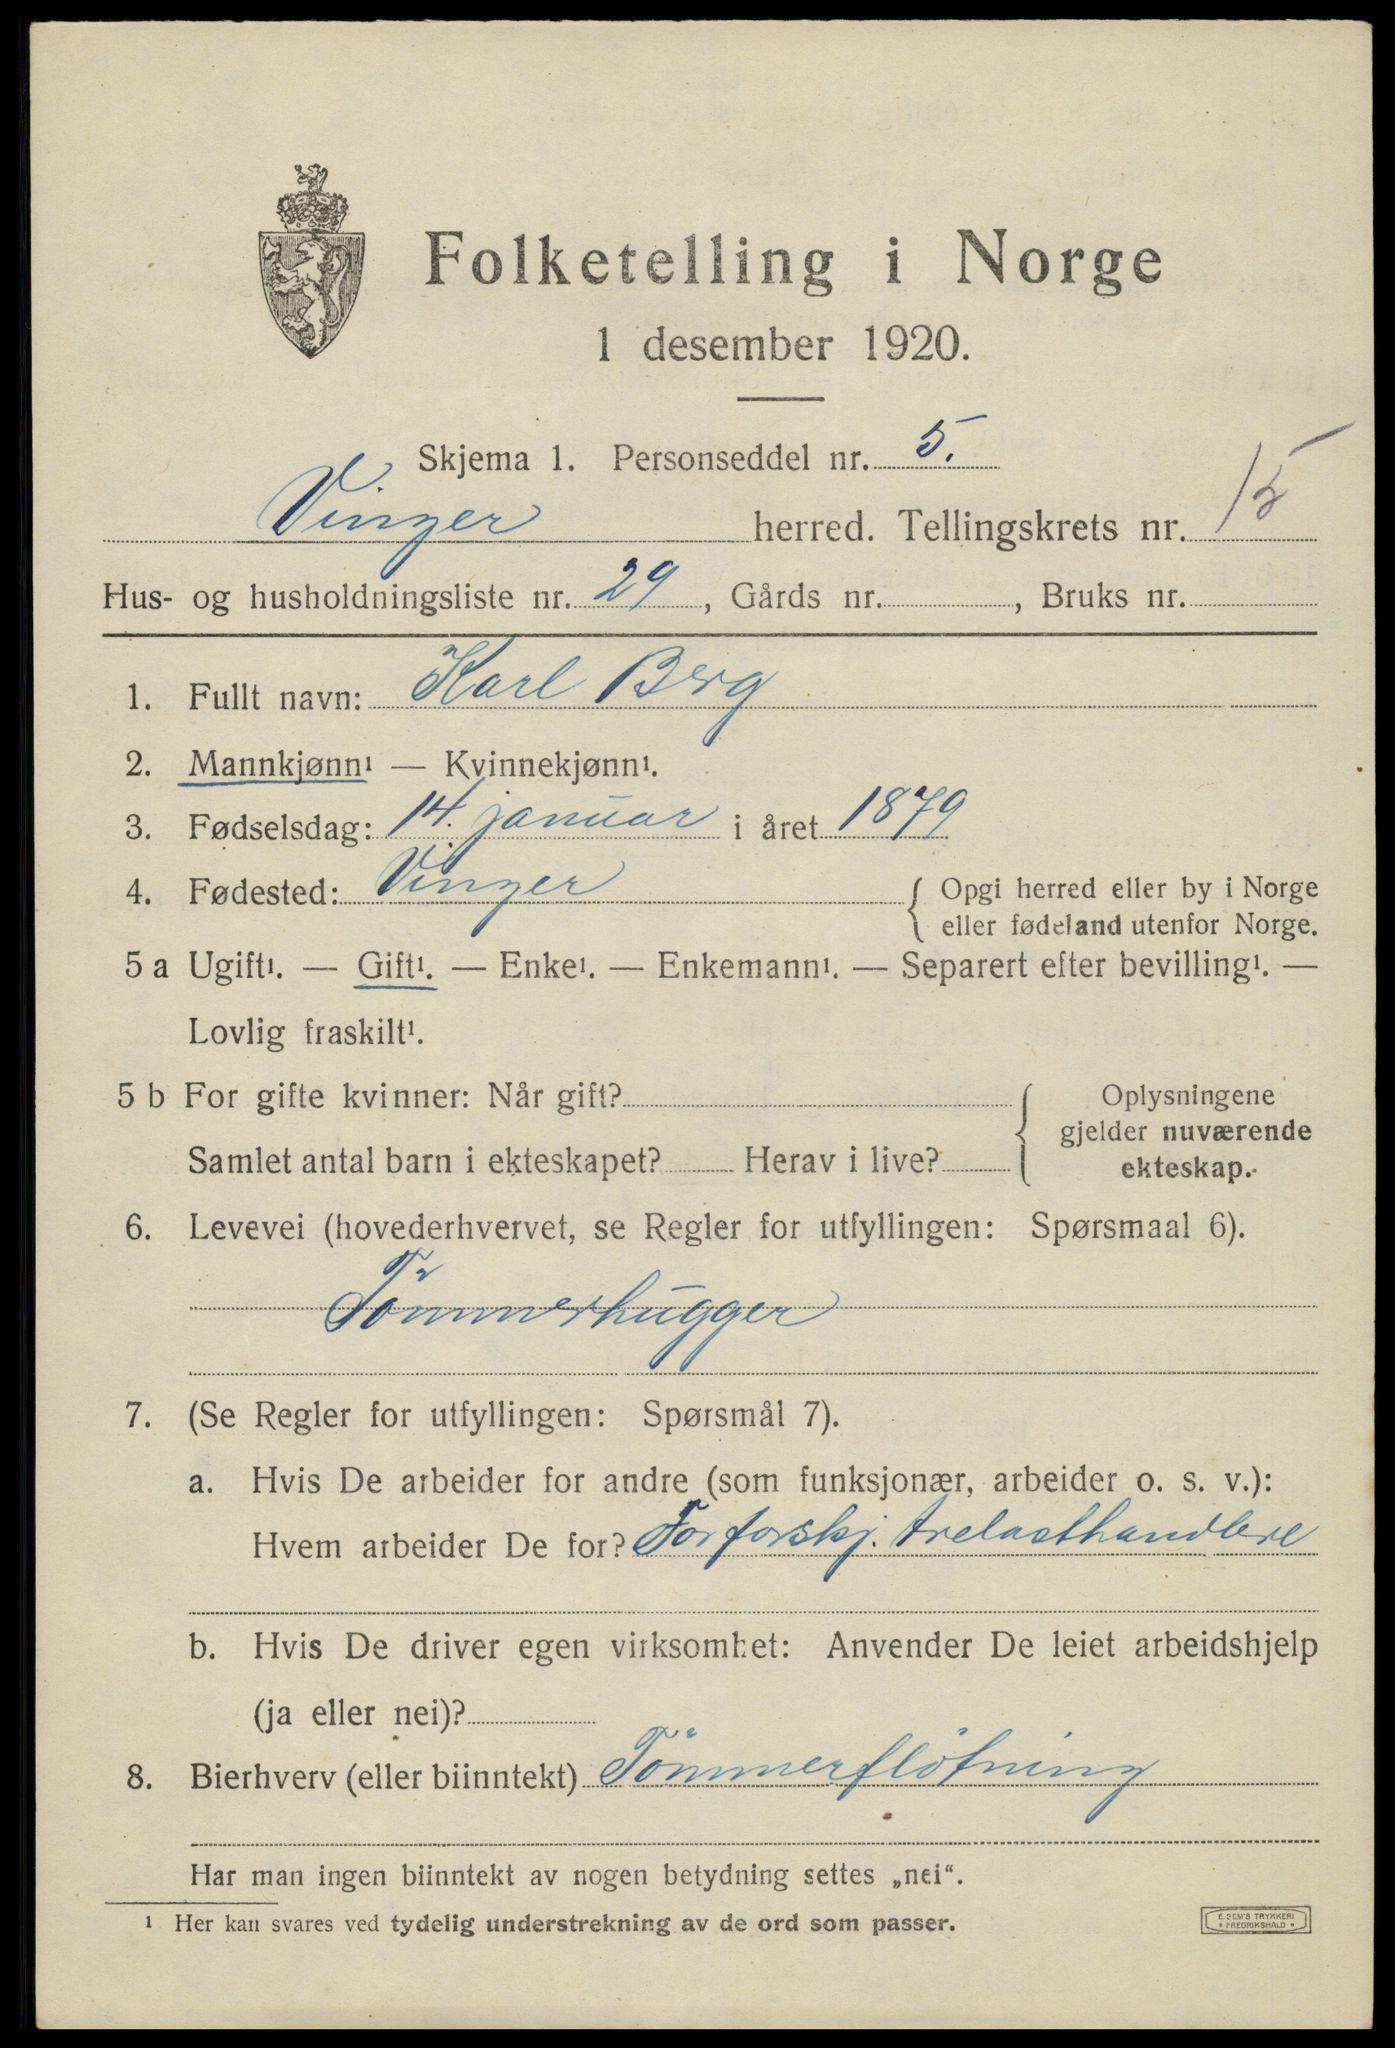 Folketelling i Norge
1 desember 1920.
Skjema 1. Personseddel nr. 5.
Vinger herred. Tellingskrets nr. 15
Hus- og husholdningsliste nr. 29, Gårds nr. , Bruks nr.
1. Fullt navn: Karl Berg
2. Mannkjønn¹ — Kvinnekjønn¹.
3. Fødselsdag: 14. januar i året 1879
4. Fødested: Vinger { Opgi herred eller by i Norge
eller fødeland utenfor Norge.
5 a Ugift¹. — Gift¹. — Enke¹. — Enkemann¹. — Separert efter bevilling¹. —
Lovlig fraskilt¹.
5 b For gifte kvinner: Når gift? { Oplysningene
gjelder nuværende
Samlet antal barn i ekteskapet? Herav i live? ekteskap.
6. Levevei (hovederhvervet, se Regler for utfyllingen: Spørsmaal 6).
Tömmerhugger
7. (Se Regler for utfyllingen: Spørsmål 7).
a. Hvis De arbeider for andre (som funksjonær, arbeider o. s. v.):
Hvem arbeider De for? For forskj. trelasthandlere
b. Hvis De driver egen virksomhet: Anvender De leiet arbeidshjelp
(ja eller nei)?
8. Bierhverv (eller biinntekt) Tömmerflötning
Har man ingen biinntekt av nogen betydning settes „nei“.
¹ Her kan svares ved tydelig understrekning av de ord som passer.
E. SEM'S TRYKKERI
* FREDRIKSHALD *